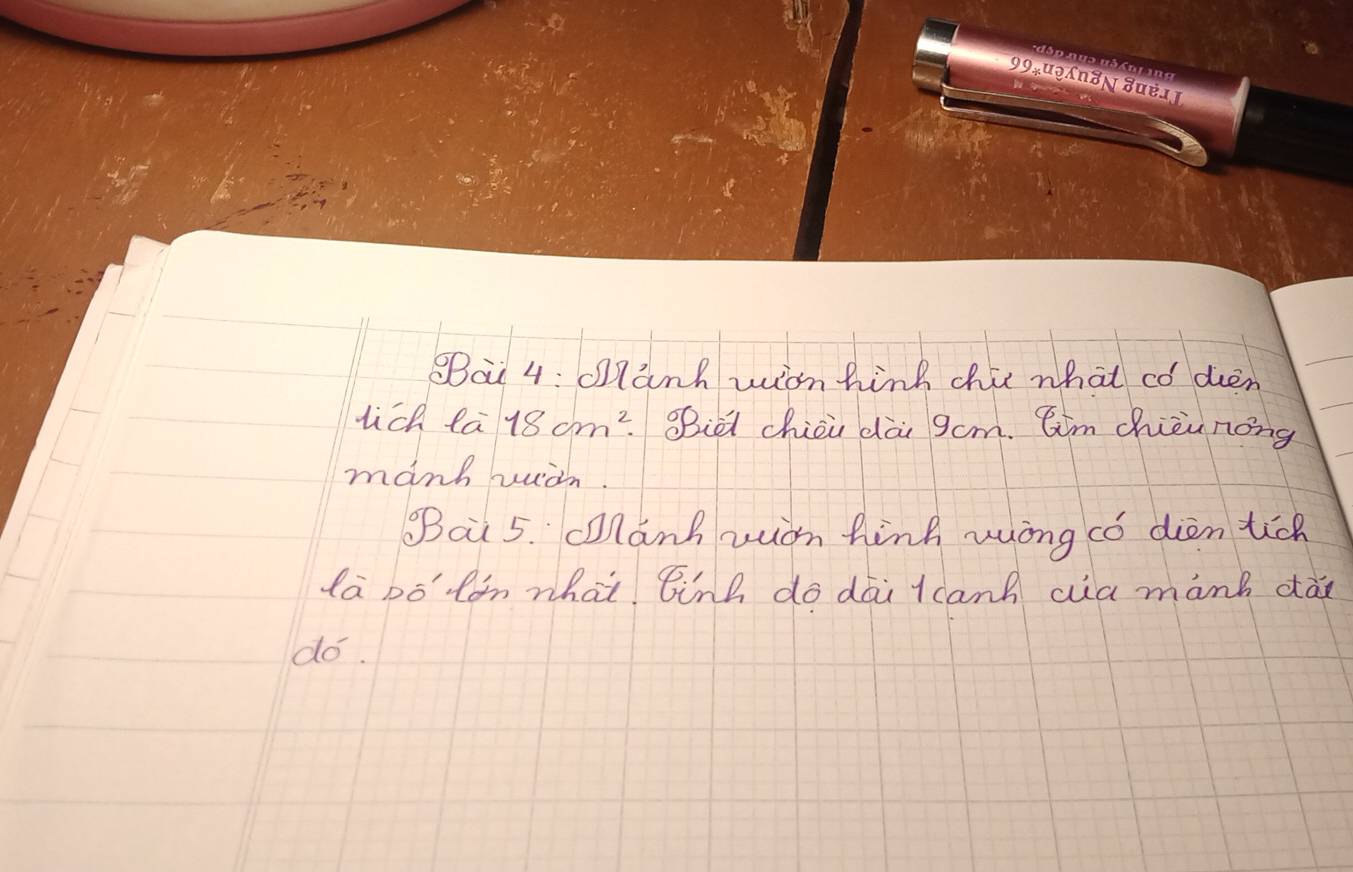 Trạng Nguyên*66
Bút luyện chữ đẹp.
Bài 4: Mảnh vườn hình chữ nhật có diện
tích là 18 cm². Biết chiều dài 9cm. Tìm chiều rộng
mảnh vườn.
Bài 5: Mảnh vườn hình vuông có diện tích
là số lớn nhất. Tính độ dài 1 cạnh của mảnh đất
đó.